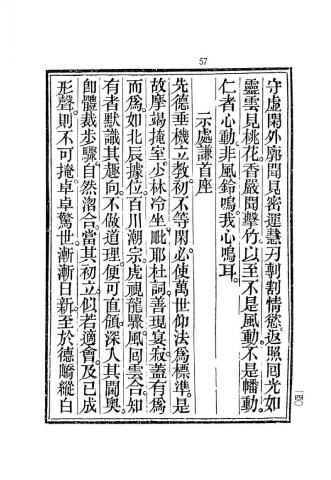 57
守虛閑外廓聞見密運慧刃剿割情慾返照回光如
靈雲見桃花香嚴聞擊竹以至不是風動。不是幡動。
仁者心動。非風鈴鳴。我心鳴耳。
示處謙首座
先德垂機立教初不等閑必使萬世仰法爲標準。是
故摩竭掩室少林冷坐毗耶杜詞善現宴寂蓋有爲
而爲。如北辰據位百川潮宗虎視龍驟風回雲合知
有者默識其趣向不做道理便可直領深入其閫奧
卽體裁步驟自然洛合當其初立似若適會及已成
形聲則不可掩卓卓驚世漸漸日新至於德嶠縱白
一四〇